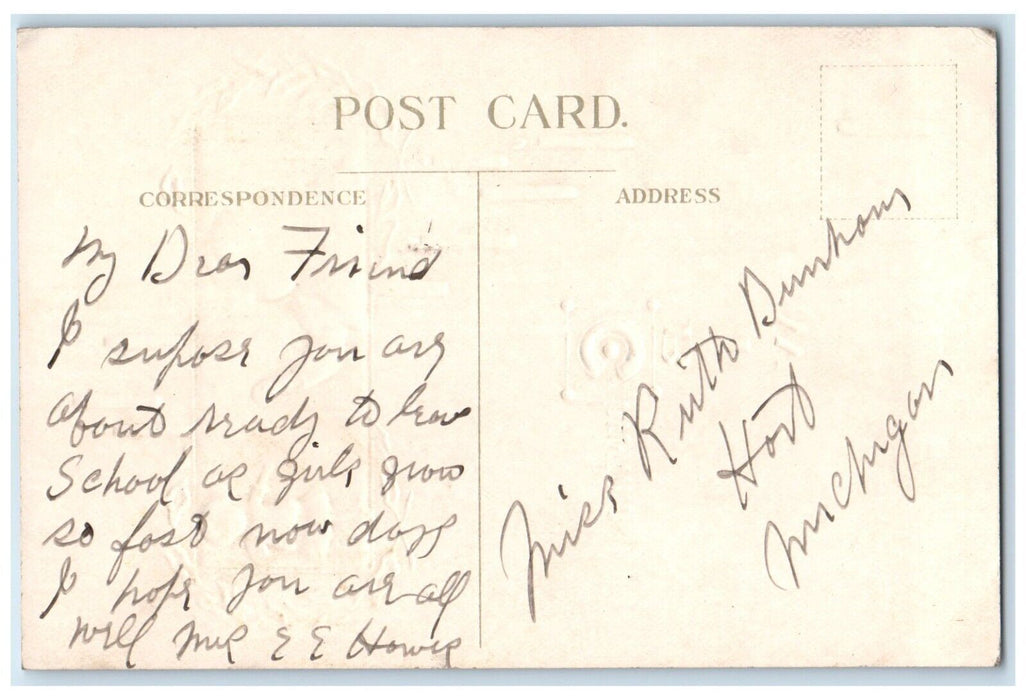 POST CARD.
CORRESPONDENCE
ADDRESS
My Dear Friend
I supose you are
about ready to leave
School as girls grow
so fast now days
I hope you are all
well Mrs E E Howe
Miss Ruth Dunham
Hart
Michigan